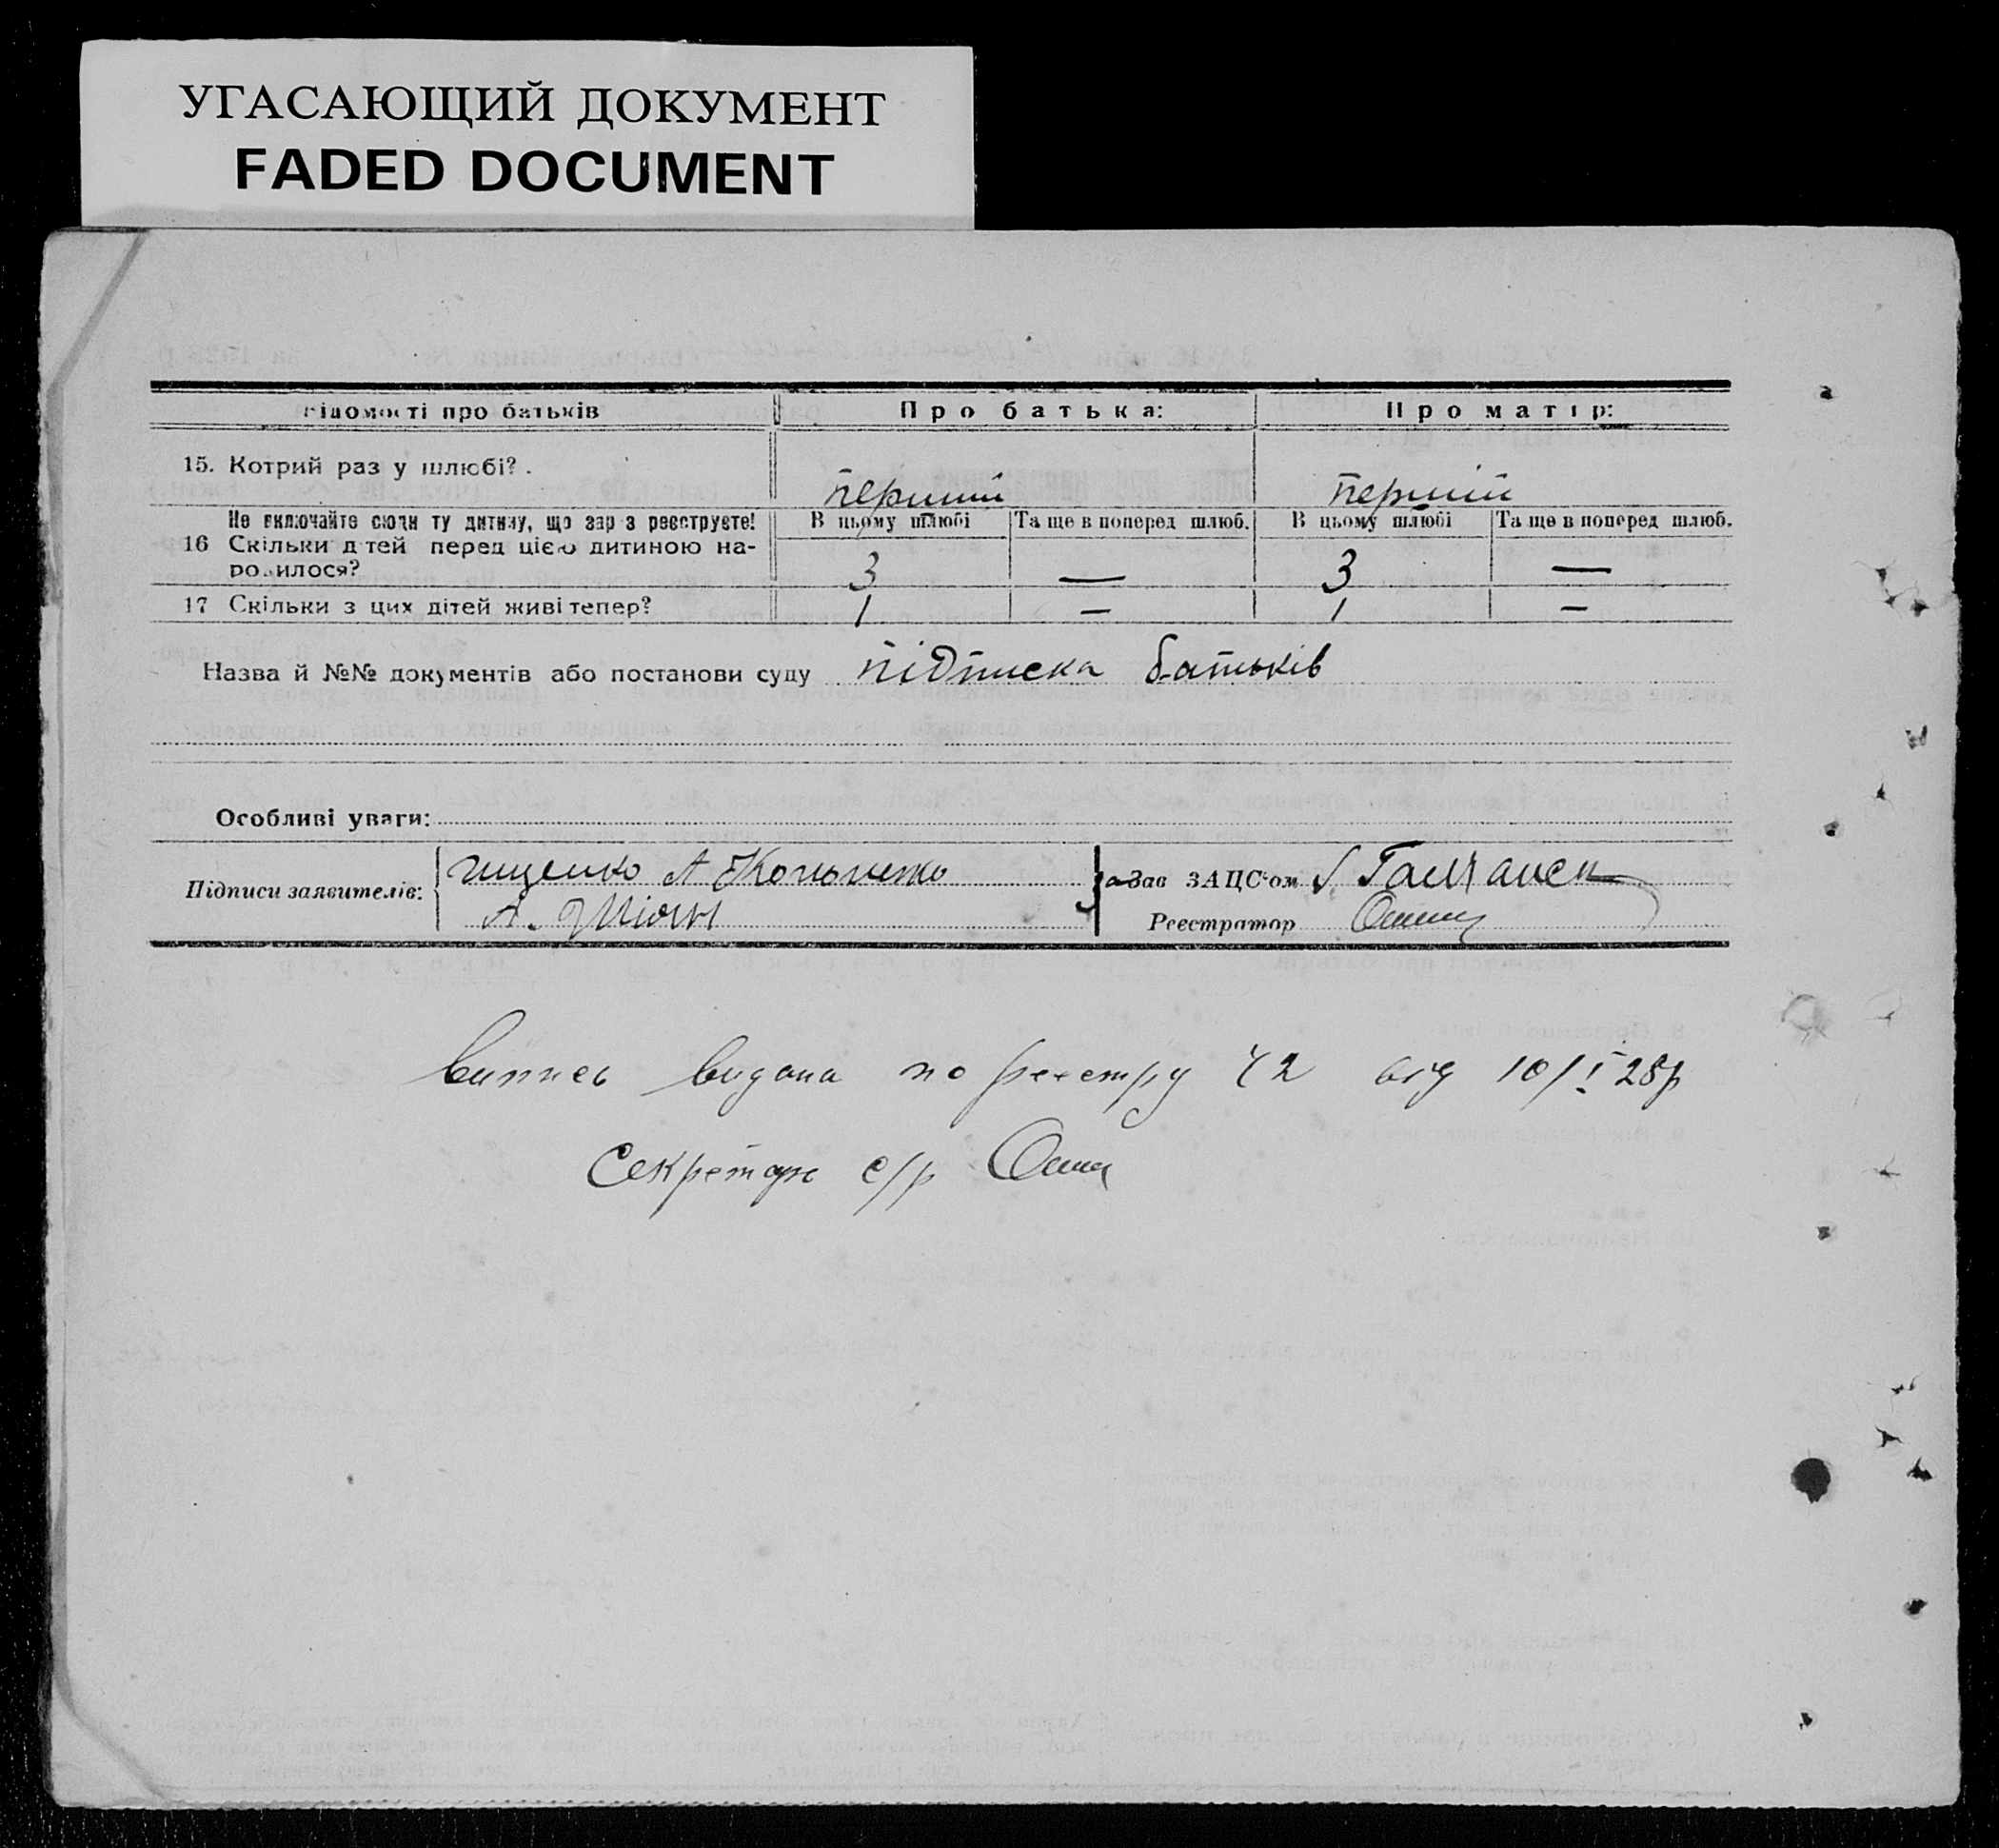 УГАСАЮЩИЙ ДОКУМЕНТ
FADED DOCUMENT
відомості про батьків Про батька: Про матір:
15. Котрий раз у шлюбі?. перший перший
Не включайте сюди ту дитину, що зар з реєструєте! В цьому шлюбі Та ще в поперед шлюб. В цьому шлюбі Та ще в поперед шлюб.
16 Скільки дітей перед цією дитиною на-
родилося? 3 — 3 —
17 Скільки з цих дітей живі тепер? 1 — 1 —
Назва й №№ документів або постанови суду підписка батьків
Особливі уваги:
Підписи заявителів: А Зав ЗАЦС'ом
А. Реєстратор
Випись видана по реєстру 42 від 10/I 28р
Секретарь с/р